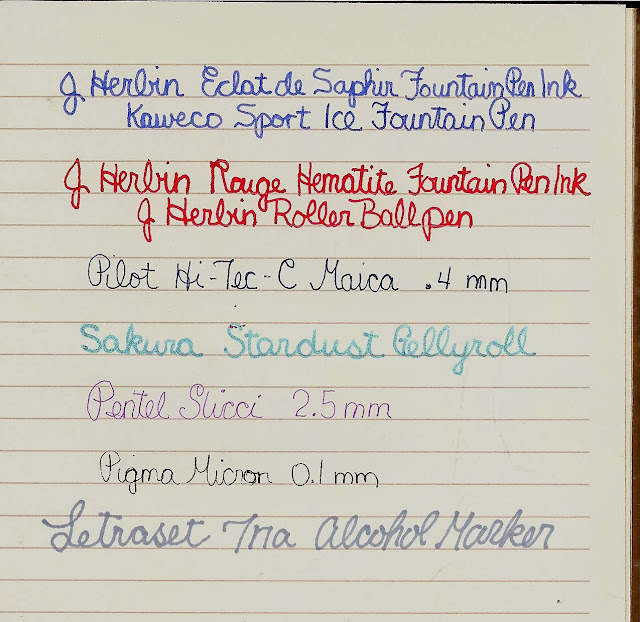 J Herbin Eclat de Saphir Fountain Pen Ink
Kaweco Sport Ice Fountain Pen
J Herbin Rouge Hematite Fountain Pen Ink
J Herbin Roller Ball pen
Pilot Hi-Tec-C Maica .4 mm
Sakura Stardust Gellyroll
Pentel Slicci 2.5 mm
Pigma Micron 0.1 mm
Letraset Tria Alcohol Marker